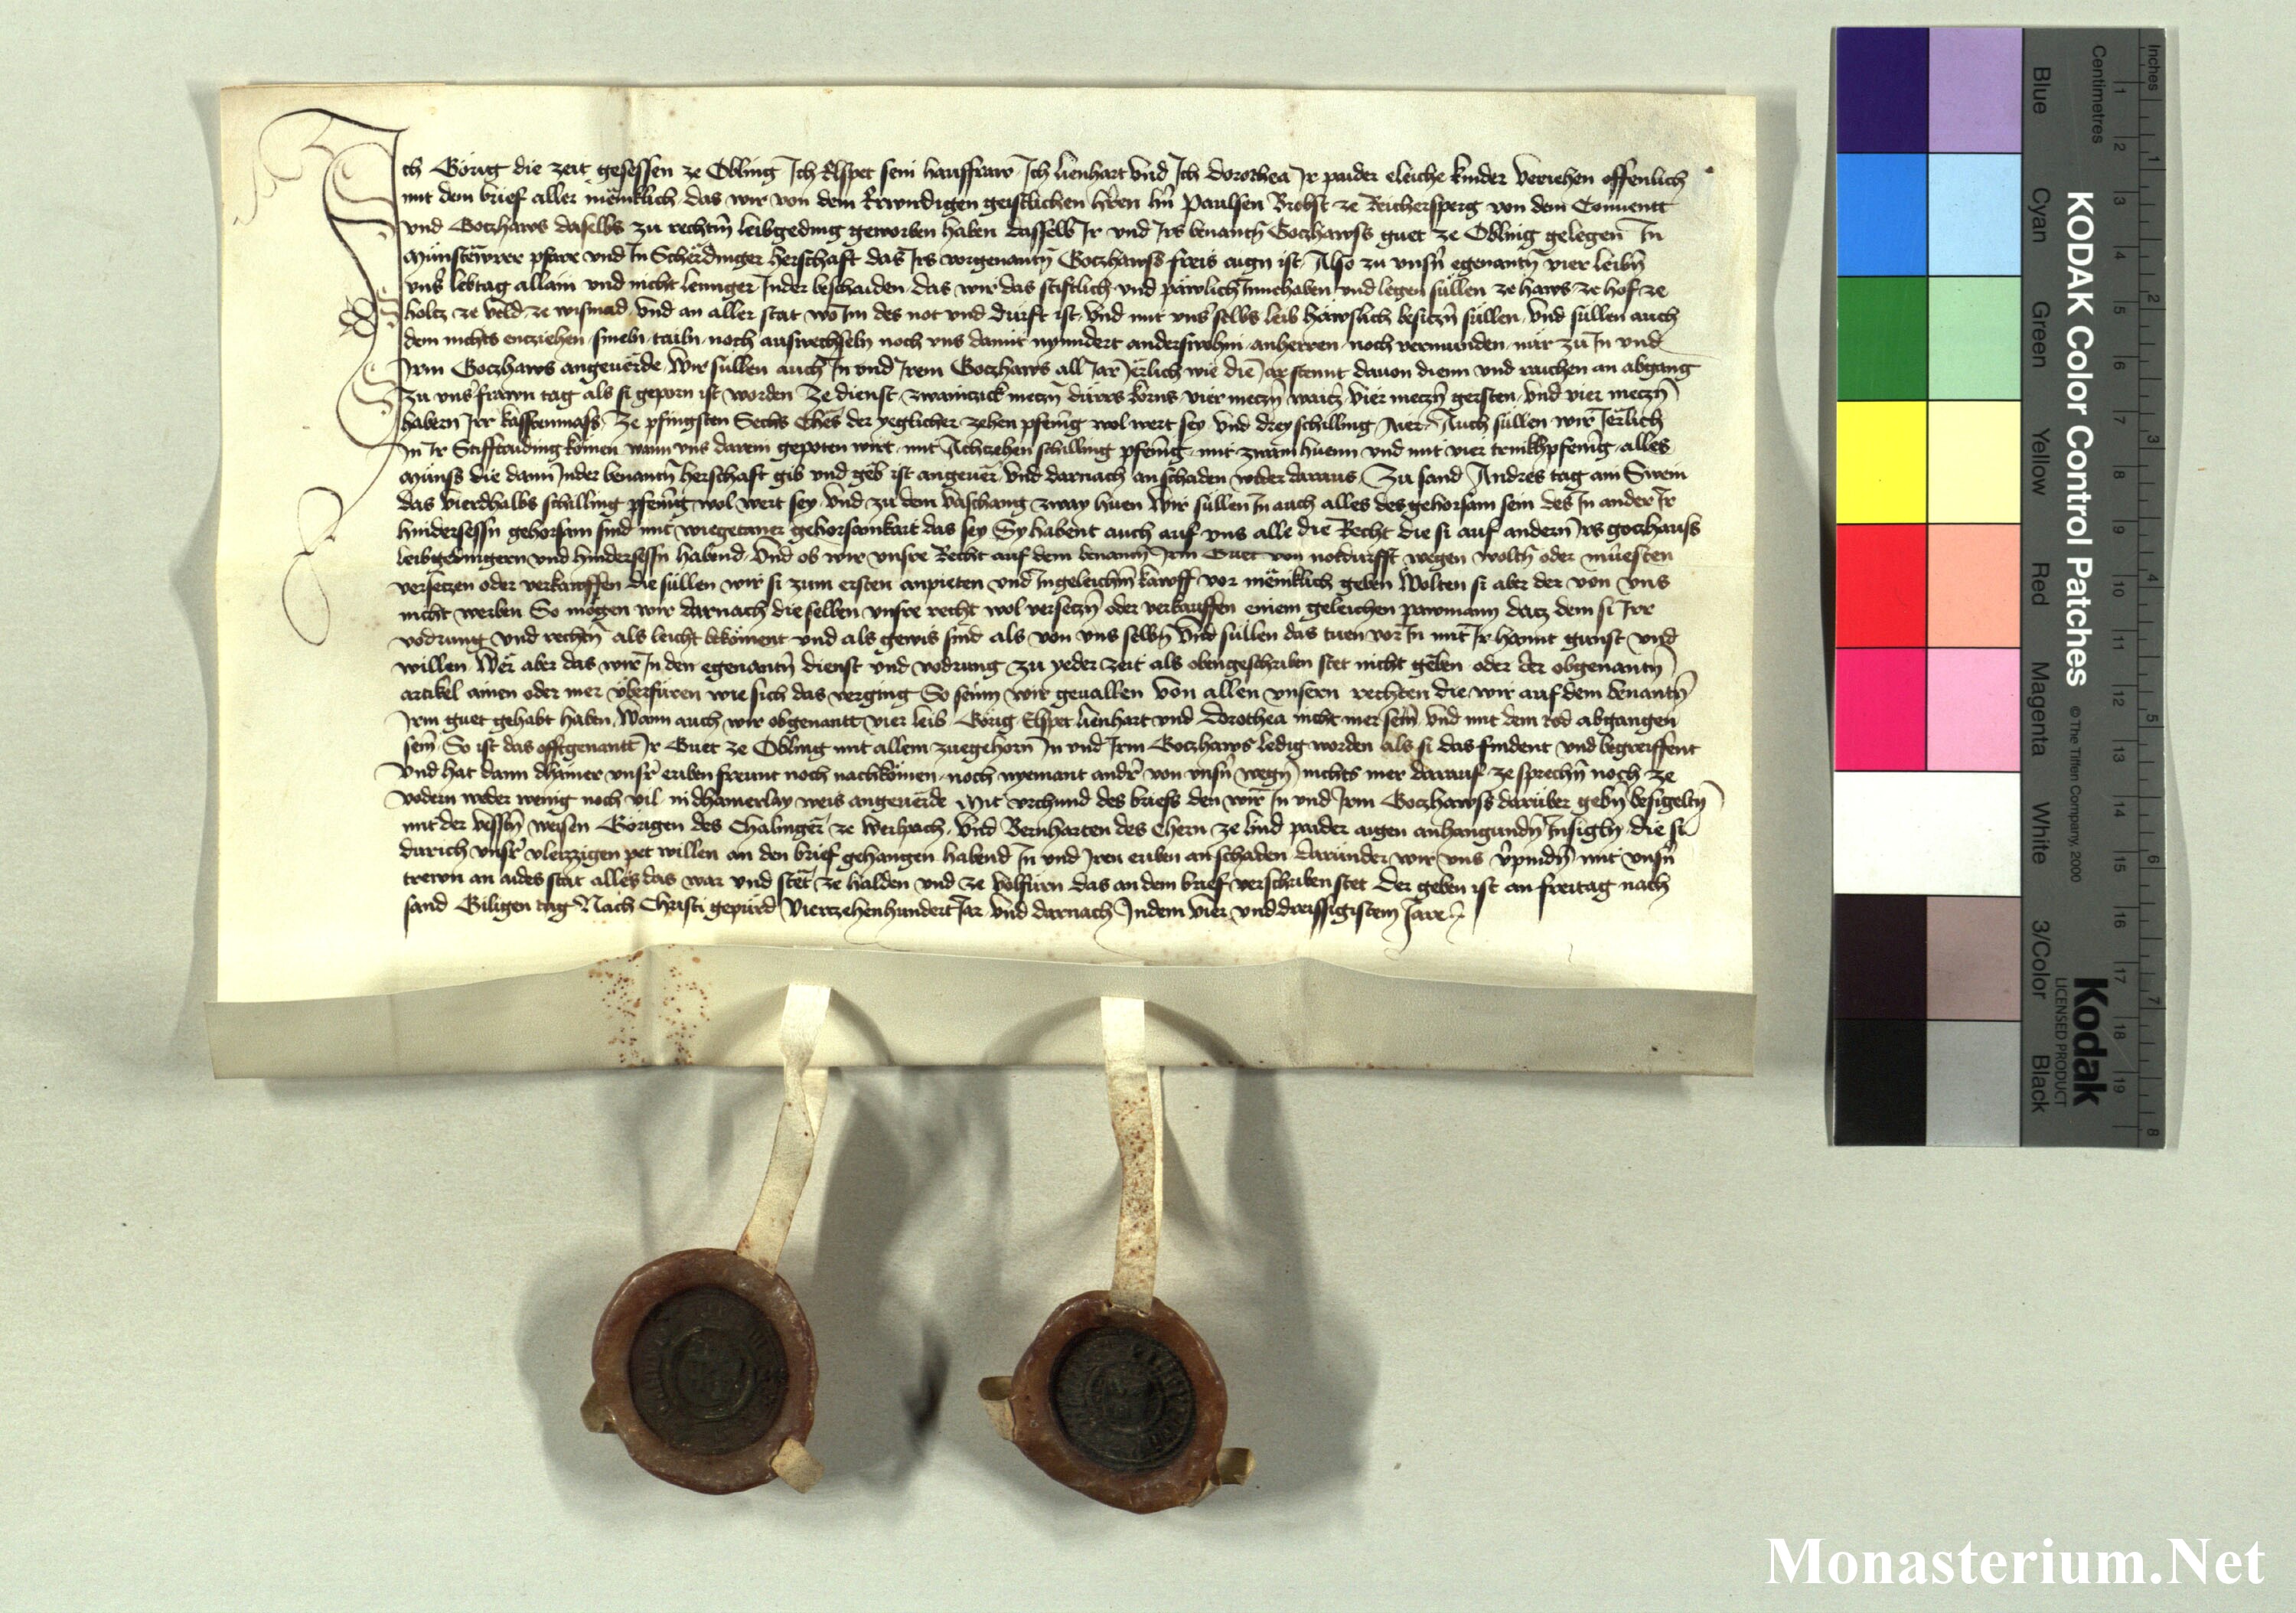 Ich Görig die zeit gesessen ze Obling Ich Elspet sein hausfraw Ich lienhart vnd Ich dorothea Ir paider eleiche kinder veriehen offenlich
mit dem brief aller mëniklich das wir von dem Erwirdigen geistlichen hren hrn Paulsen Brobst ze Reichersperg von dem Conuentt
vnd Goczhaws daselbs zu rechtn leibgeding geworben haben dasselb Ir vnd Irs benantn Goczhawss guet ze Obling gelegen In
Münstewrer pfarr vnd In Scherdinger herschaft das Irs vorgenantn Goczhawss freis aign ist Also zu vnsn egenantn vier leibn
vns lebtag allain vnd nicht lennger Inder beschaiden das wir das stiftlich vnd päwlich Innehaben vnd legen süllen ze haws ze hof ze
holcz ze veld ze wismad vnd an aller stat wo Im des not vnd durft ist vnd mit vns selbs leib häwslich besiczn süllen vnd süllen auch
dem nichts encziehen smeln tailn noch auswechseln noch vns damit nynndert anderswohin anherren noch vermunden nür zu In vnd
Irm Goczhaws angeuërde Wir süllen auch In vnd Irem Goczhaws all Jar Jërlich wie die Jar stennt dauon dienn vnd raichen an abgang
Zu vns frawn tag als si geporn ist worden Ze dienst zwainczick meczn dürrs korns vier meczn waicz vier meczn gersten vnd vier meczn
habern Irr kasstenmass Ze pfingsten Sechs Ches der yeglicher zehen pfenig wol wert sey vnd drey schilling Air Auch süllen wir Jërlich
In Ir Stifftading kömen wann vns darein gepoten wirt mit Achczehen schilling pfenig mit zwain huenn vnd mit vier trinkhpfenig alles
Münss die dann Inder benantn herschaft gib vnd geb ist angeuer vnd darnach an schaden wider daraus Zu sand Andres tag ain Swein
das vierdhalbs schilling pfenig wol wert sey vnd zu dem vaschang zway huen Wir süllen In auch alles des gehorsam sein des In ander Ir
hindersessn gehorsam sind mit wiegetaner gehorsamkait das sey Sy habent auch auf vns alle die Recht die si auf andern Irs goczhauss
leibgedingern vnd hindersessn habend Vnd ob wir vnsre Recht auf dem benantn Irm Guet von notdurfft wegen woltn oder müesten
verseczen oder verkauffen die süllen wir si zum ersten anpieten vnd Ingeleichm kawff vor mëniklich geben Wolten si aber der von vns
nicht werben So mögen wir darnach die selben vnsre recht wol verseczn oder verkauffen einem geleichen pawmann dacz dem si Irr
vodrung vnd rechtn als leicht bekoment vnd als gewis sind als von vns selbn Vnd süllen das tuen vor In mit Ir hannt gunst vnd
willen Wër aber das wir In den egenantn dienst vnd vodrung zu yeder zeit als obengeschriben stet nicht gëben oder der obgenantn
artikel ainen oder mer überfüren wie sich das verging So seinn wir geuallen von allen vnsern rechten die wir auf dem benantn
Irm guet gehabt haben Wann auch wir obgenantt vier leib Görig Elspet lienhart vnd dorothea nicht mer sein vnd mit dem tod abgangen
sein So ist das offtgenantt Ir Guet ze Obling mit allem zuegehorn In vnd Irm Goczhaws ledig worden als si das findent vnd begreiffent
vnd hat dann dhainer vnsr eriben freunt noch nachkömen noch nyemant andr von vnsn wegn nichts mer darauf ze sprechn noch ze
vodern weder wenig noch vil in dhainerlay weis angeuërde Mit vrchund des briefs den wir In vnd Irm Goczhawss darüber gebn besigeltn
mit der vesstn weisen Görigen des Chalinger ze Weihpach vnd Bernharten des Ehern ze lind paider aigen anhangundn Insigln die si
durich vnsr vleizzigen pet willen an den brief gehangen habend In vnd Iren eriben an schaden darunder wir vns vpindn mit vnsn
trewn an aides stat alles das war vnd stët ze halden vnd ze volfürn das an dem brief verschriben stet Der geben ist an freitag nach
sand Giligen tag Nach Christi gepürd Vierczehenhundert Jar vnd darnach Indem vier vnd dreissigistem Jare
KODAK Color Control Patches
© The Tiffen Company, 2000
Kodak
LICENSED PRODUCT
Inches
1 2 3 4 5 6 7 8
Centimetres
1 2 3 4 5 6 7 8 9 10 11 12 13 14 15 16 17 18 19
Blue
Cyan
Green
Yellow
Red
Magenta
White
3/Color
Black
Monasterium.Net